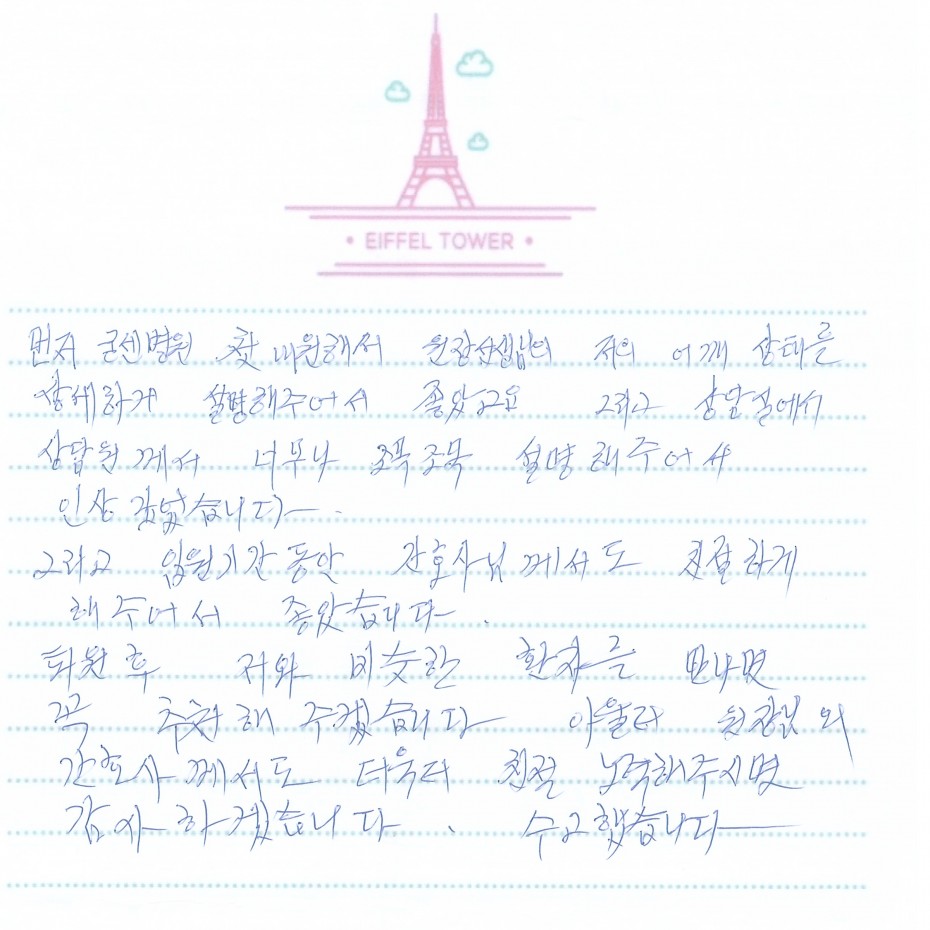 • EIFFEL TOWER •
먼저 굳센병원 첫 내원해서 원장선생님의 저의 어깨 상태를
상세하게 설명해주어서 좋았고요 그리고 상담실에서
상담원께서 너무나 조목조목 설명해주어서
인상 깊었습니다.
그리고 입원기간동안 간호사님께서도 친절하게
해주어서 좋았습니다.
퇴원후 저와 비슷한 환자를 만나면
꼭 추천해 주겠습니다 아울러 원장님 외
간호사께서도 더욱더 친절 노력해주시면
감사하겠습니다. 수고했습니다